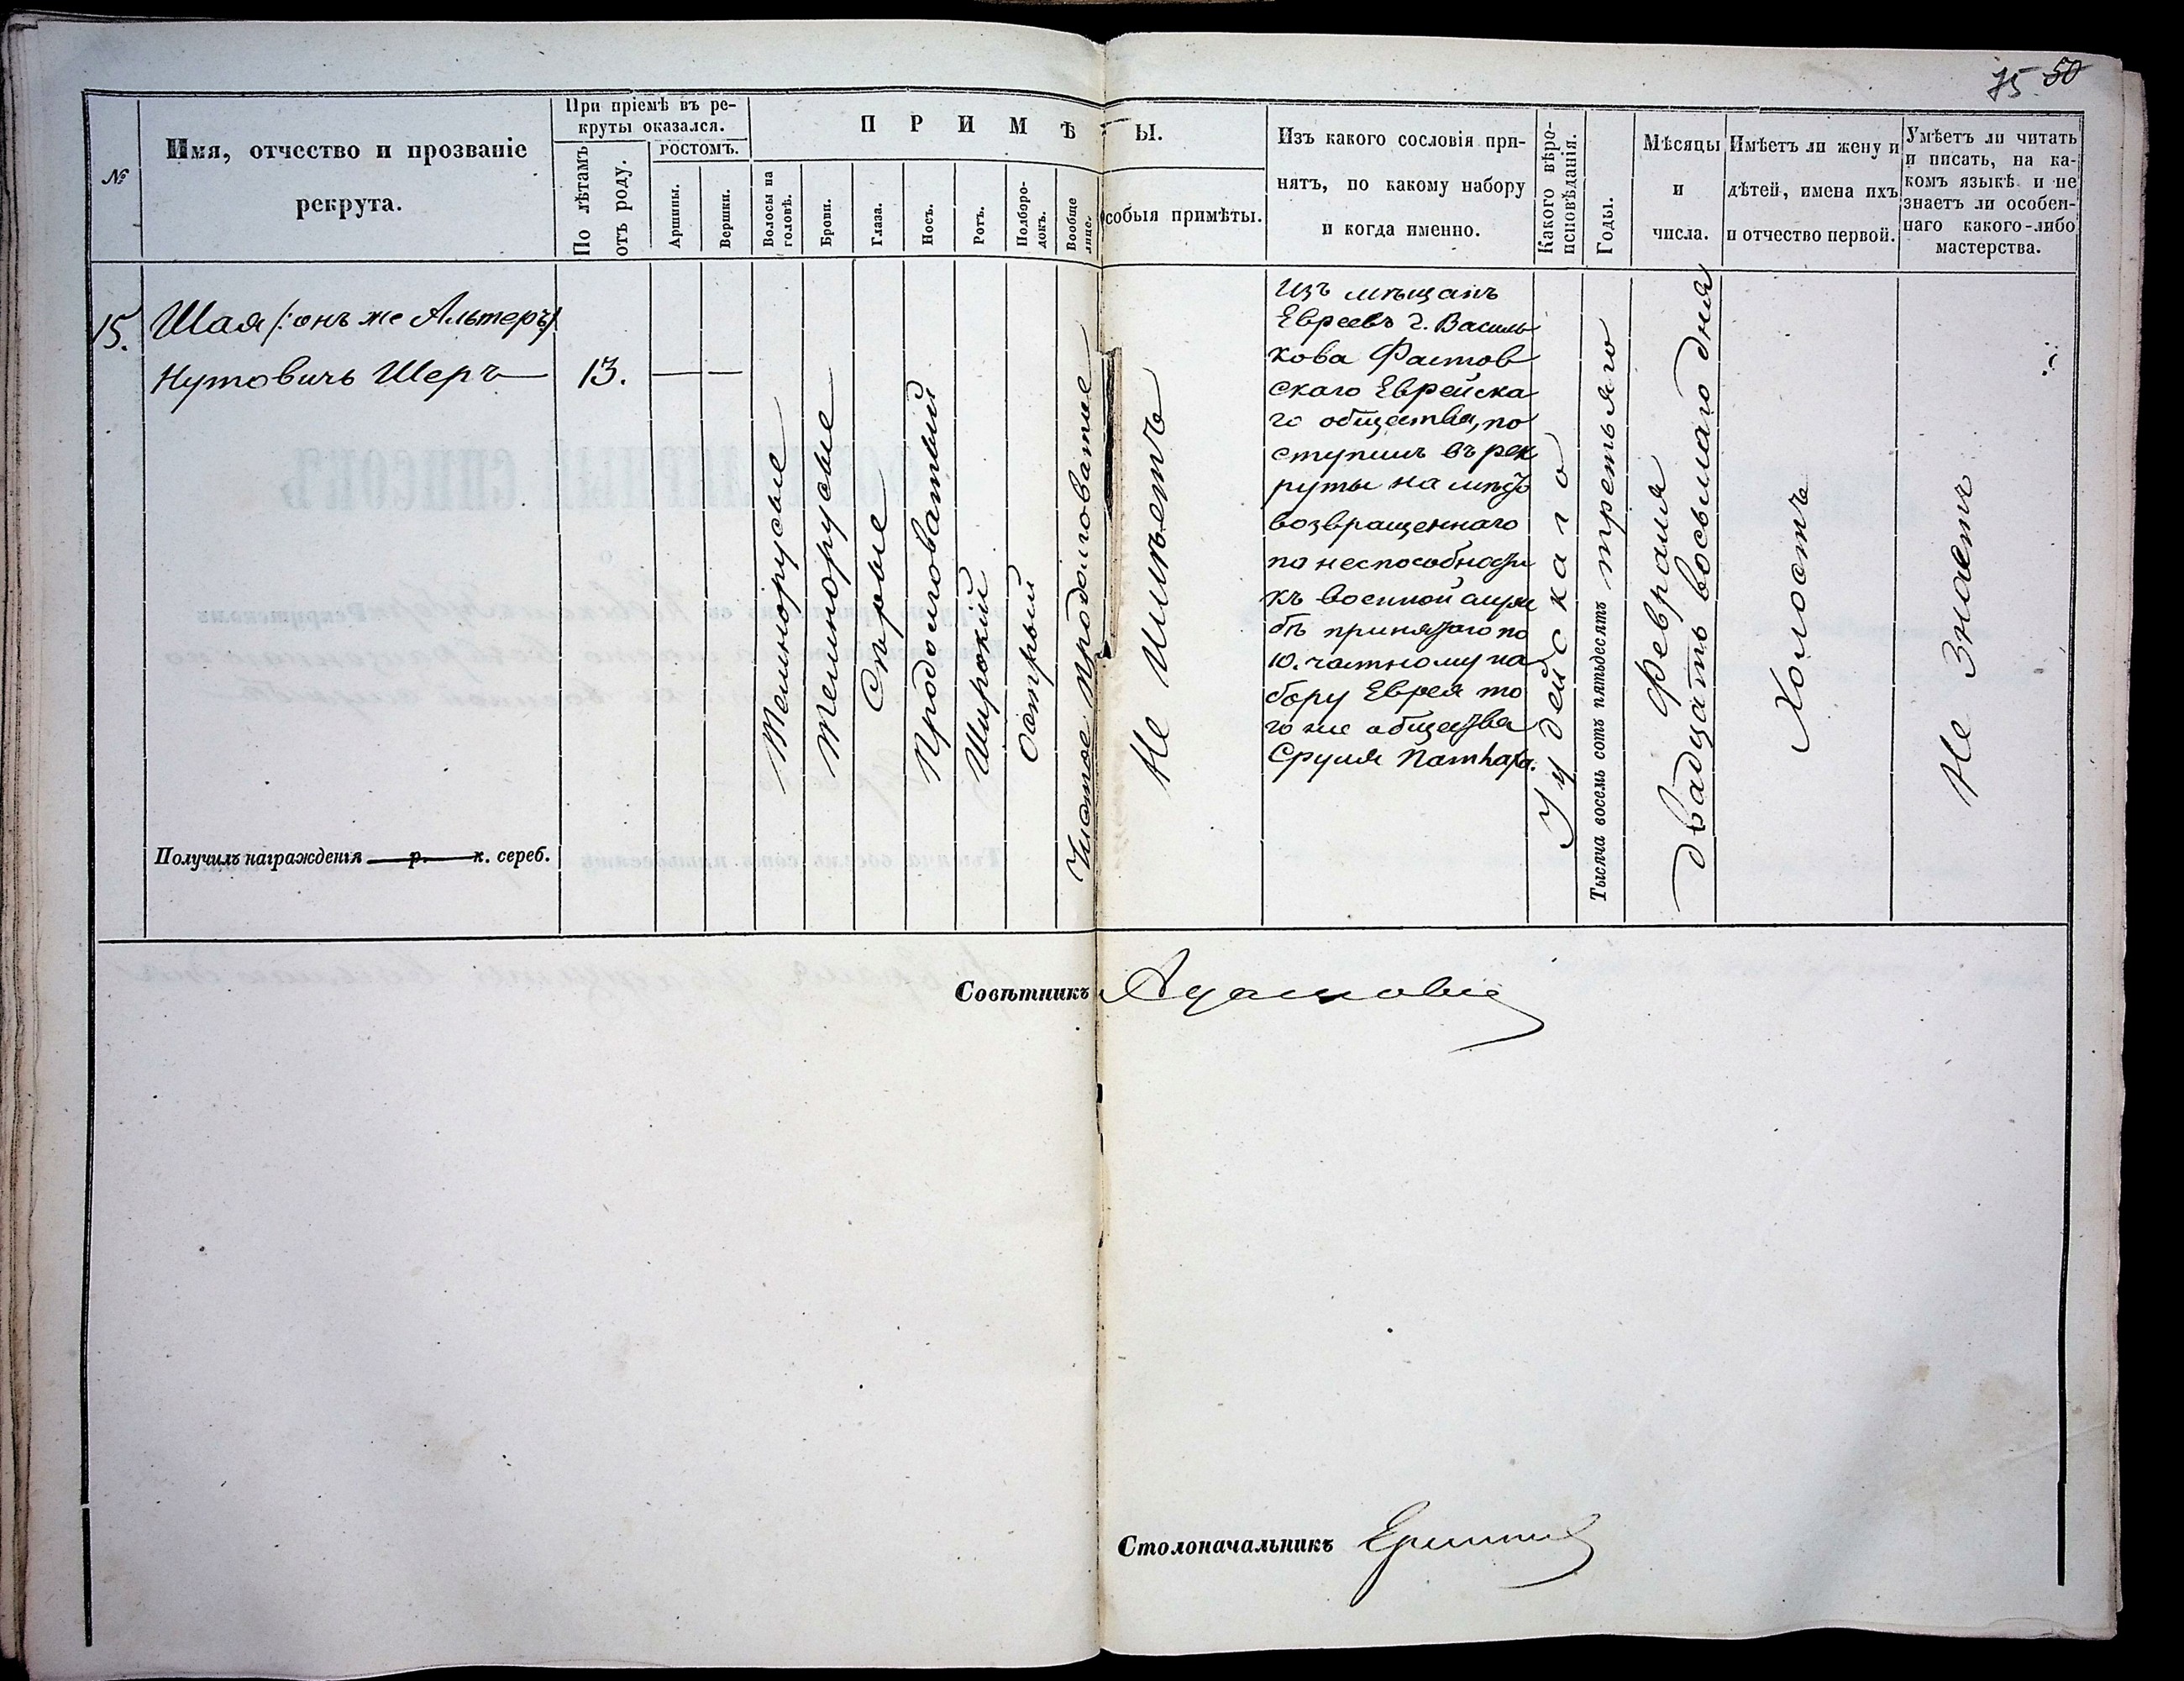 75 50
№
Имя, отчество и прозваніе
рекрута.
При пріемѣ въ ре-
круты оказался.
По лѣтамъ
отъ роду.
ростомъ.
Аршины.
Вершки.
ПРИМѢ
Ы.
Волосы на
головѣ.
Брови.
Глаза.
Носъ.
Ротъ.
Подборо-
докъ.
Вообще
лице.
Особыя примѣты.
Изъ какого сословія при-
нятъ, по какому набору
и когда именно.
Какого вѣро-
исповѣданія.
Годы.
Мѣсяцы
и
числа.
Имѣетъ ли жену и
дѣтей, имена ихъ
и отчество первой.
Умѣетъ ли читать
и писать, на ка-
комъ языкѣ и не
знаетъ ли особен-
наго какого-либо
мастерства.
15.
Шая /: онъ же Альтеръ/
Нутовичъ Шеръ
13.
Темнорусые
Темнорусые
Сѣрые
Продолговатый
Широкій
Острый
Чистое Продолговатое
Не имѣетъ
Изъ мѣщанъ
Евреевъ г. Василь
кова Фастов
скаго Еврейска
го общества, по
ступилъ въ рек
руты на мѣсто
возвращеннаго
по неспособности
къ военной служ
бѣ принятаго по
10. частному на
бору Еврея то
го же общества
Сруля
Іудейскаго
Тысяча восемь сотъ пятьдесятъ третьяго
Февраля
двадцать восьмаго дня
Холостъ
Не знаетъ
Получилъ награжденія р. к. сереб.
Совѣтникъ
Столоначальникъ